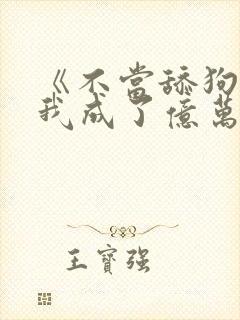 《不當舔狗
我成了億萬
王寶强